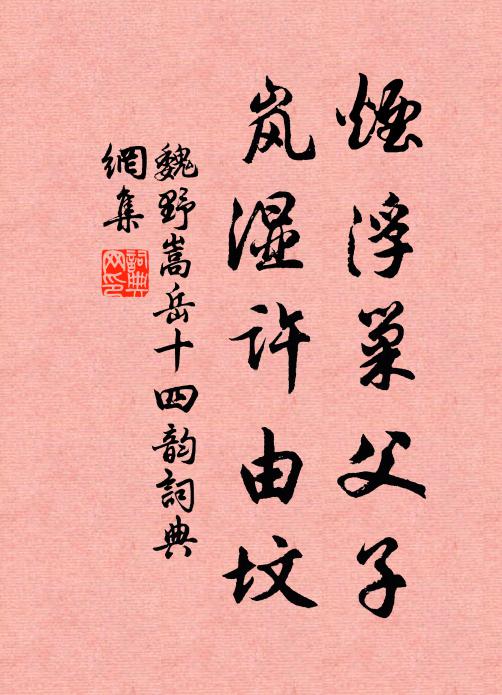 煙浮巢父子
岚湿許由坟
魏野嵩岳十四韵詞典
網集
詞典网印